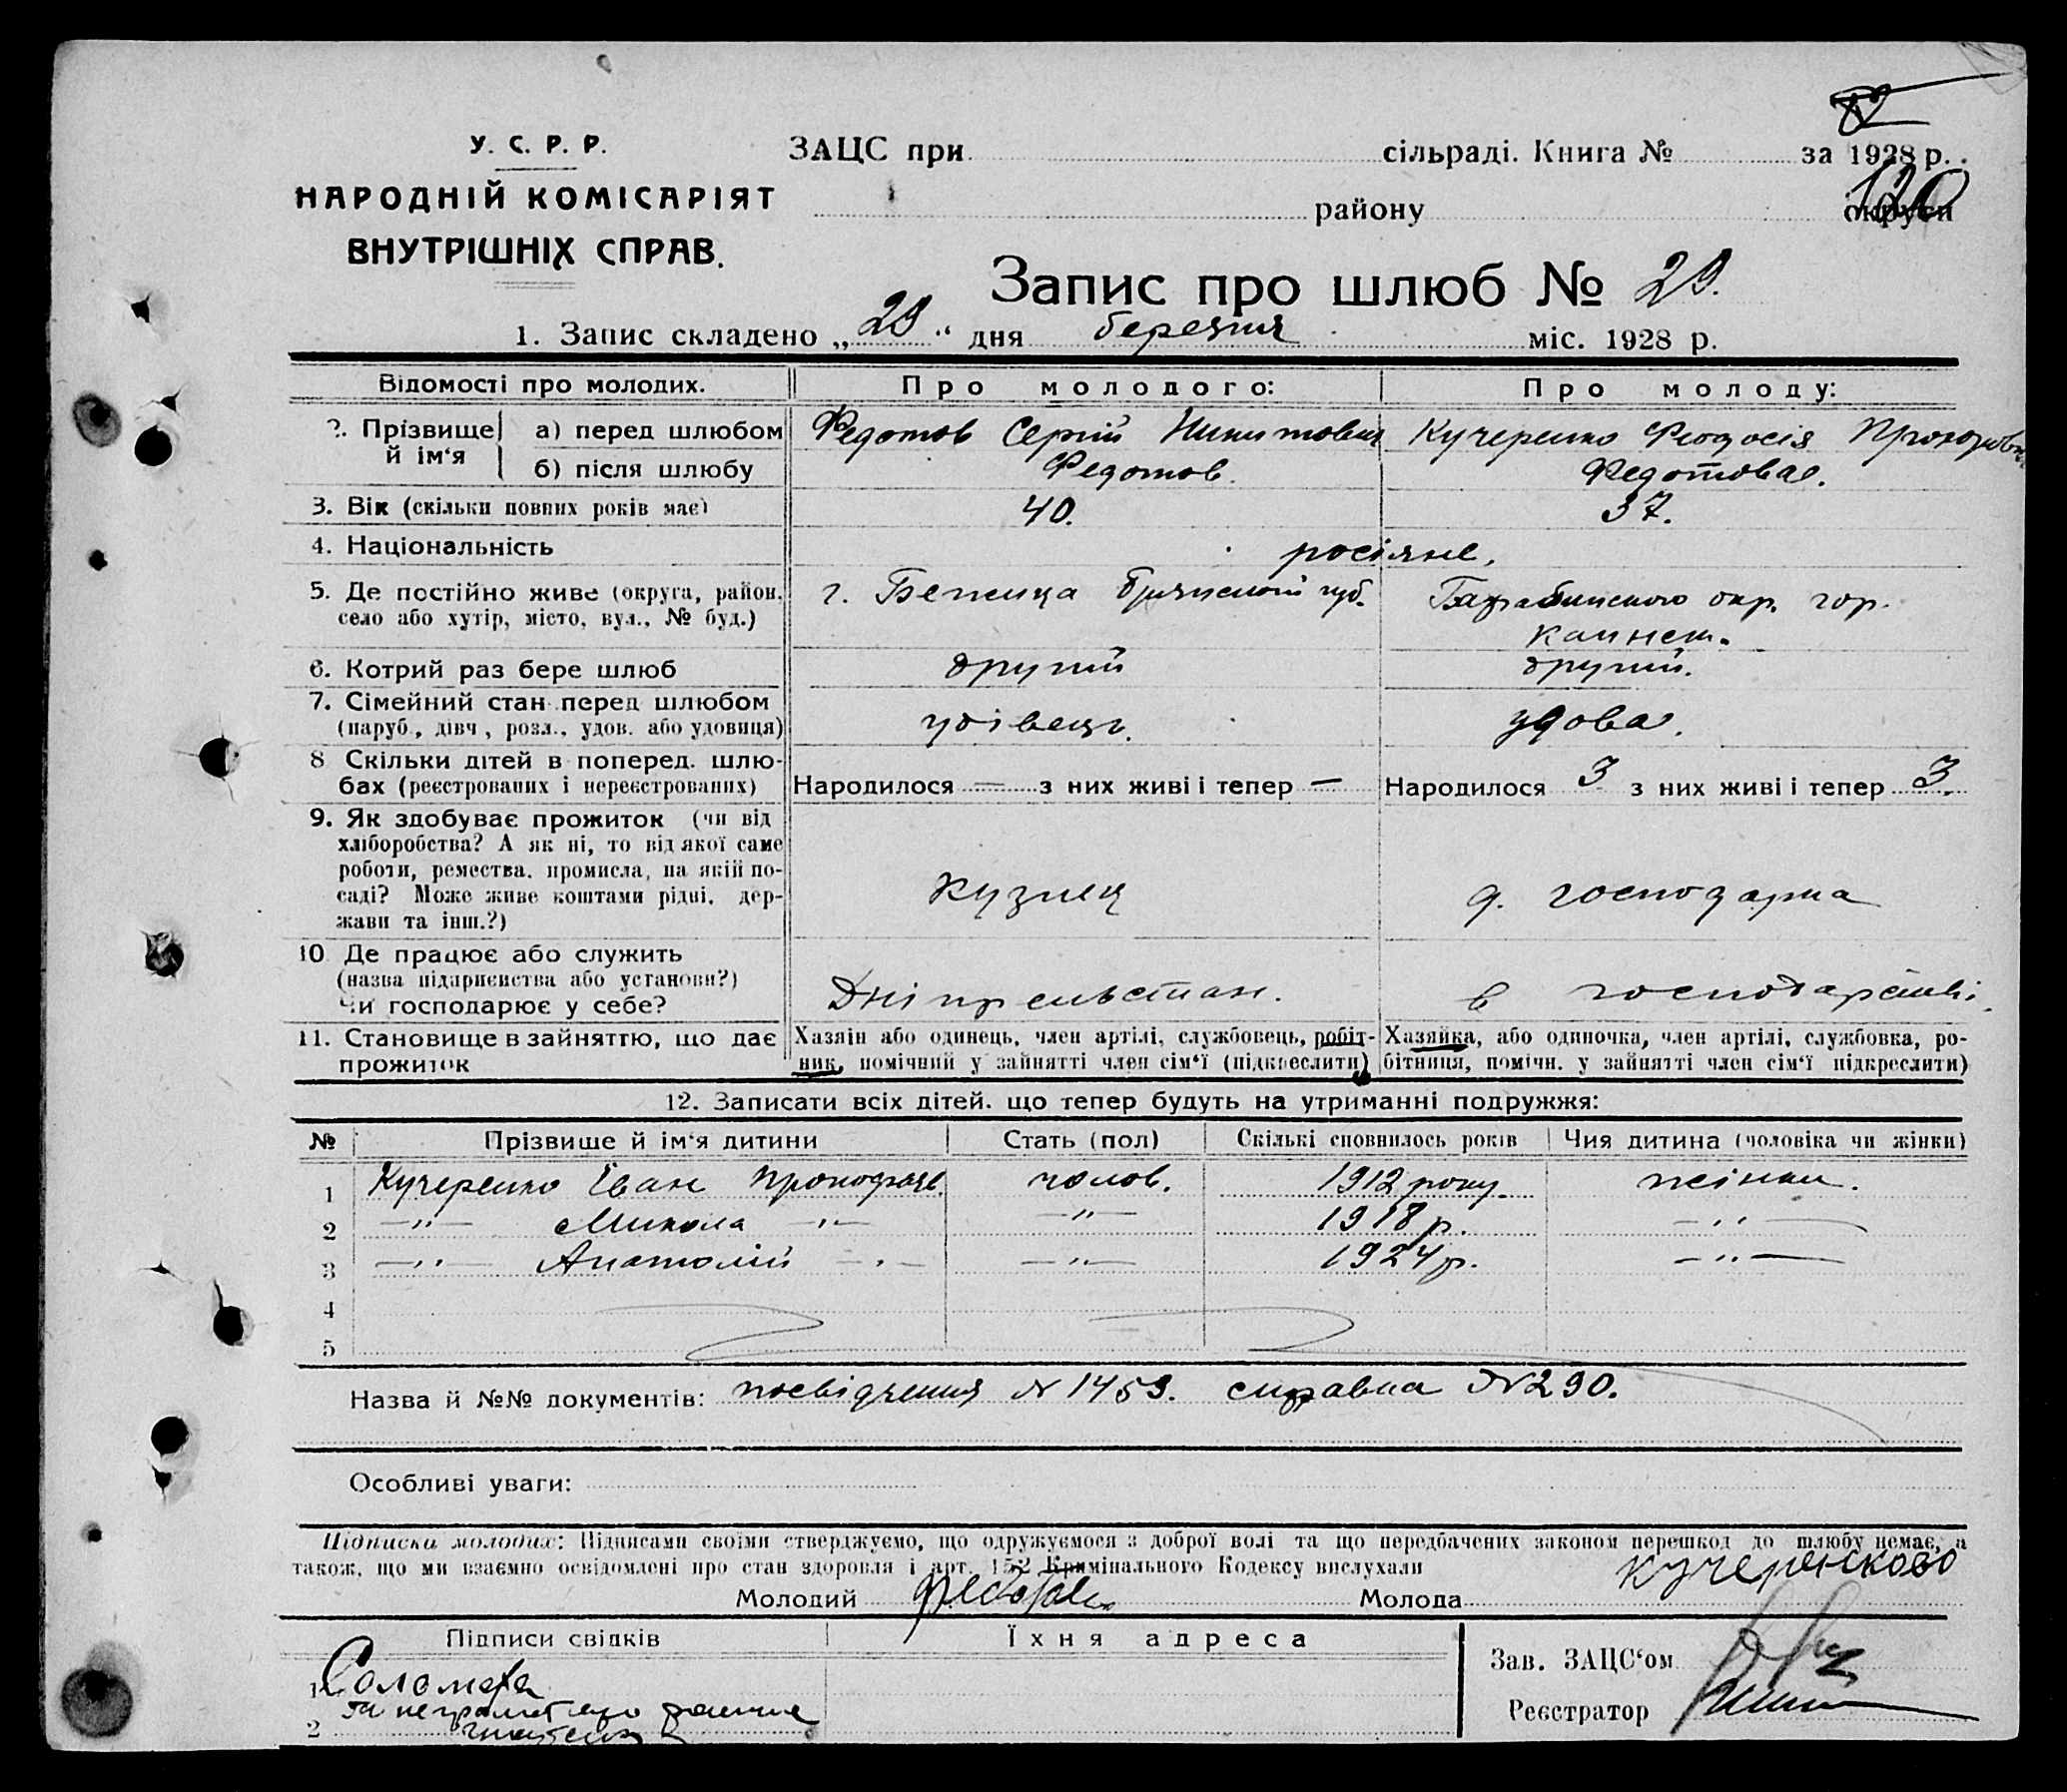 У. С. Р. Р.
НАРОДНІЙ КОМІСАРІЯТ
ВНУТРІШНІХ СПРАВ.
ЗАЦС при сільраді. Книга № за 1928 р.
району округи
120
Запис про шлюб № 29.
1. Запис складено „29“ дня березня міс. 1928 р.
Відомості про молодих. Про молодого: Про молоду:
2. Прізвище й ім‘я а) перед шлюбом Федотов Сергій Никитович Кучеренко Феодосія
б) після шлюбу Федотов. Федотова.
3. Вік (скільки повних років має) 40. 37.
4. Національність росіяне.
5. Де постійно живе (округа, район, г. Бежица Брянской губ. Барабинского окр. гор.
село або хутір, місто, вул., № буд.) Каинск.
6. Котрий раз бере шлюб другий другий.
7. Сімейний стан перед шлюбом
(паруб., дівч., розл., удов. або удовиця) удівець. удова.
8 Скільки дітей в поперед. шлю-
бах (реєстрованих і нереєстрованих) Народилося — з них живі і тепер — Народилося 3 з них живі і тепер 3.
9. Як здобуває прожиток (чи від
хліборобства? А як ні, то від якої саме
роботи, ремества, промисла, на якій по-
саді? Може живе коштами рідні, дер- кузнец д. господарка
жави та інш.?)
10 Де працює або служить
(назва підприємства або установи?) Дніпрельстан. в господарстві.
Чи господарює у себе?
11. Становище в зайняттю, що дає Хазяін або одинець, член артілі, службовець, робіт- Хазяйка, або одиночка, член артілі, службовка, ро-
прожиток ник, помічний у зайнятті член сім‘ї (підкреслити) бітниця, помічн. у зайнятті член сім‘ї підкреслити)
12. Записати всіх дітей, що тепер будуть на утриманні подружжя:
№ Прізвище й ім‘я дитини Стать (пол) Скількі сповнилось років Чия дитина (чоловіка чи жінки)
1 Кучеренко Іван чолов. 1912 року. жінки.
2 —"— Микола —"— —"— 1918 р. —"—
3 —"— Анатолій —"— —"— 1924 р. —"—
4
5
Назва й №№ документів: посвідчення № 1453. справка № 290.
Особливі уваги:
Підписка молодих: Підписами своїми стверджуємо, що одружуємося з доброї волі та що передбачених законом перешкод до шлюбу немає, а
також, що ми взаємно освідомлені про стан здоровля і арт. 152 Кримінального Кодексу вислухали
Молодий Молода Кучеренково
Підписи свідків Їхня адреса
1
2
Зав. ЗАЦС‘ом
Реєстратор